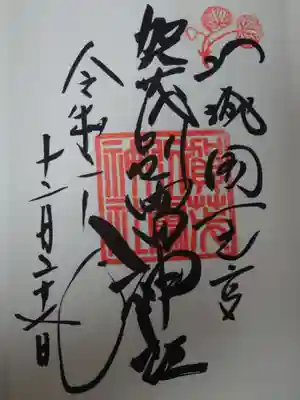 山城国一之宮
賀茂別雷神社
令和二年
十二月二十六日